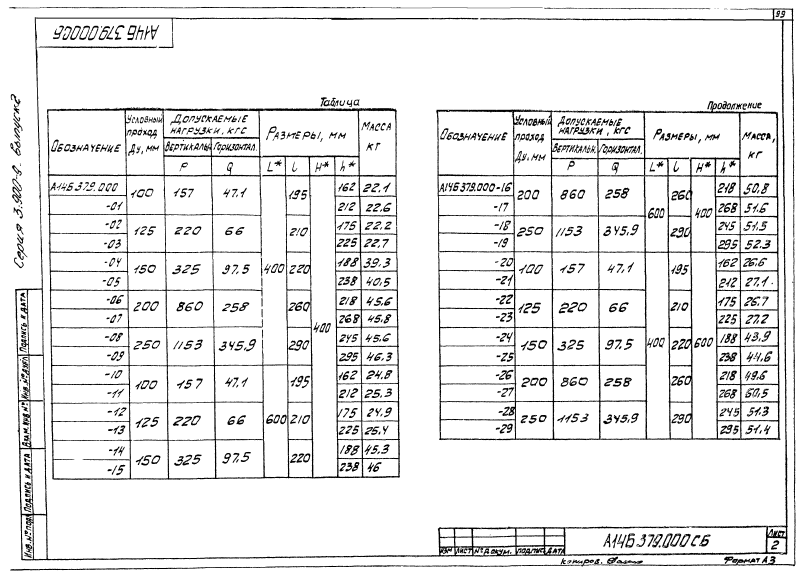 99
А14Б 379.000СБ
Серия 3.900-9. Выпуск 2
Таблица
Обозначение | Условный проход Ду, мм | Допускаемые нагрузки, кгс | Размеры, мм | Масса кг
Вертикальн. P | Горизонтал. Q | L* | l | H* | h*
А14Б.379.000 | 100 | 157 | 47.1 | 400 | 195 | 400 | 162 | 22.1
-01 | 212 | 22.6
-02 | 125 | 220 | 66 | 210 | 175 | 22.2
-03 | 225 | 22.7
-04 | 150 | 325 | 97.5 | 220 | 188 | 39.3
-05 | 238 | 40.5
-06 | 200 | 860 | 258 | 260 | 218 | 45.6
-07 | 268 | 45.8
-08 | 250 | 1153 | 345.9 | 290 | 245 | 45.6
-09 | 295 | 46.3
-10 | 100 | 157 | 47.1 | 600 | 195 | 162 | 24.8
-11 | 212 | 25.3
-12 | 125 | 220 | 66 | 210 | 175 | 24.9
-13 | 225 | 25.4
-14 | 150 | 325 | 97.5 | 220 | 188 | 45.3
-15 | 238 | 46
Продолжение
Обозначение | Условный проход Ду, мм | Допускаемые нагрузки, кгс | Размеры, мм | Масса, кг
Вертикальн. P | Горизонтал. Q | L* | l | H* | h*
А14Б.379.000-16 | 200 | 860 | 258 | 600 | 260 | 400 | 218 | 50.8
-17 | 268 | 51.6
-18 | 250 | 1153 | 345.9 | 290 | 245 | 51.5
-19 | 295 | 52.3
-20 | 100 | 157 | 47.1 | 400 | 195 | 600 | 162 | 26.6
-21 | 212 | 27.1
-22 | 125 | 220 | 66 | 210 | 175 | 26.7
-23 | 225 | 27.2
-24 | 150 | 325 | 97.5 | 220 | 188 | 43.9
-25 | 238 | 44.6
-26 | 200 | 860 | 258 | 260 | 218 | 49.6
-27 | 268 | 50.5
-28 | 250 | 1153 | 345.9 | 290 | 245 | 51.3
-29 | 295 | 51.4
Инв. № подл. Подпись и дата Взам. инв. № Инв. № дубл. Подпись и дата
Изм Лист № докум. Подпись Дата
А14Б.379.000СБ
Лист
2
Копиров.
Формат А3